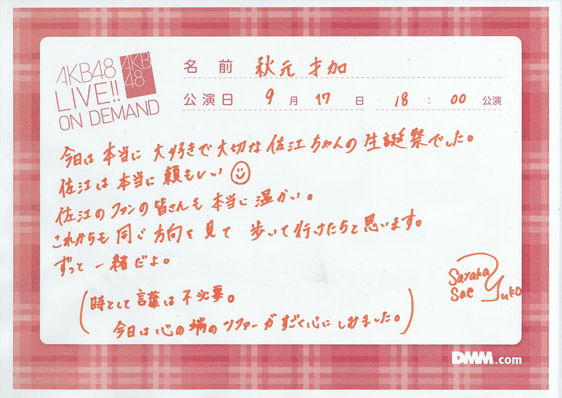 AKB48
LIVE!!
ON DEMAND
AKB
48
名前 秋元才加
公演日 9月17日 18:00公演
今日は本当に大好きで大切な佐江ちゃんの生誕祭でした。
佐江は本当に頼もしい
佐江のファンの皆さんも本当に温かい。
これからも同じ方向を見て歩いて行けたらと思います。
ずっと一緒だよ。
(時として言葉は不必要。
今日は心の端のソファーがすごく心にしみました。)
Sayaka
Sae
Yuko
DMM.com